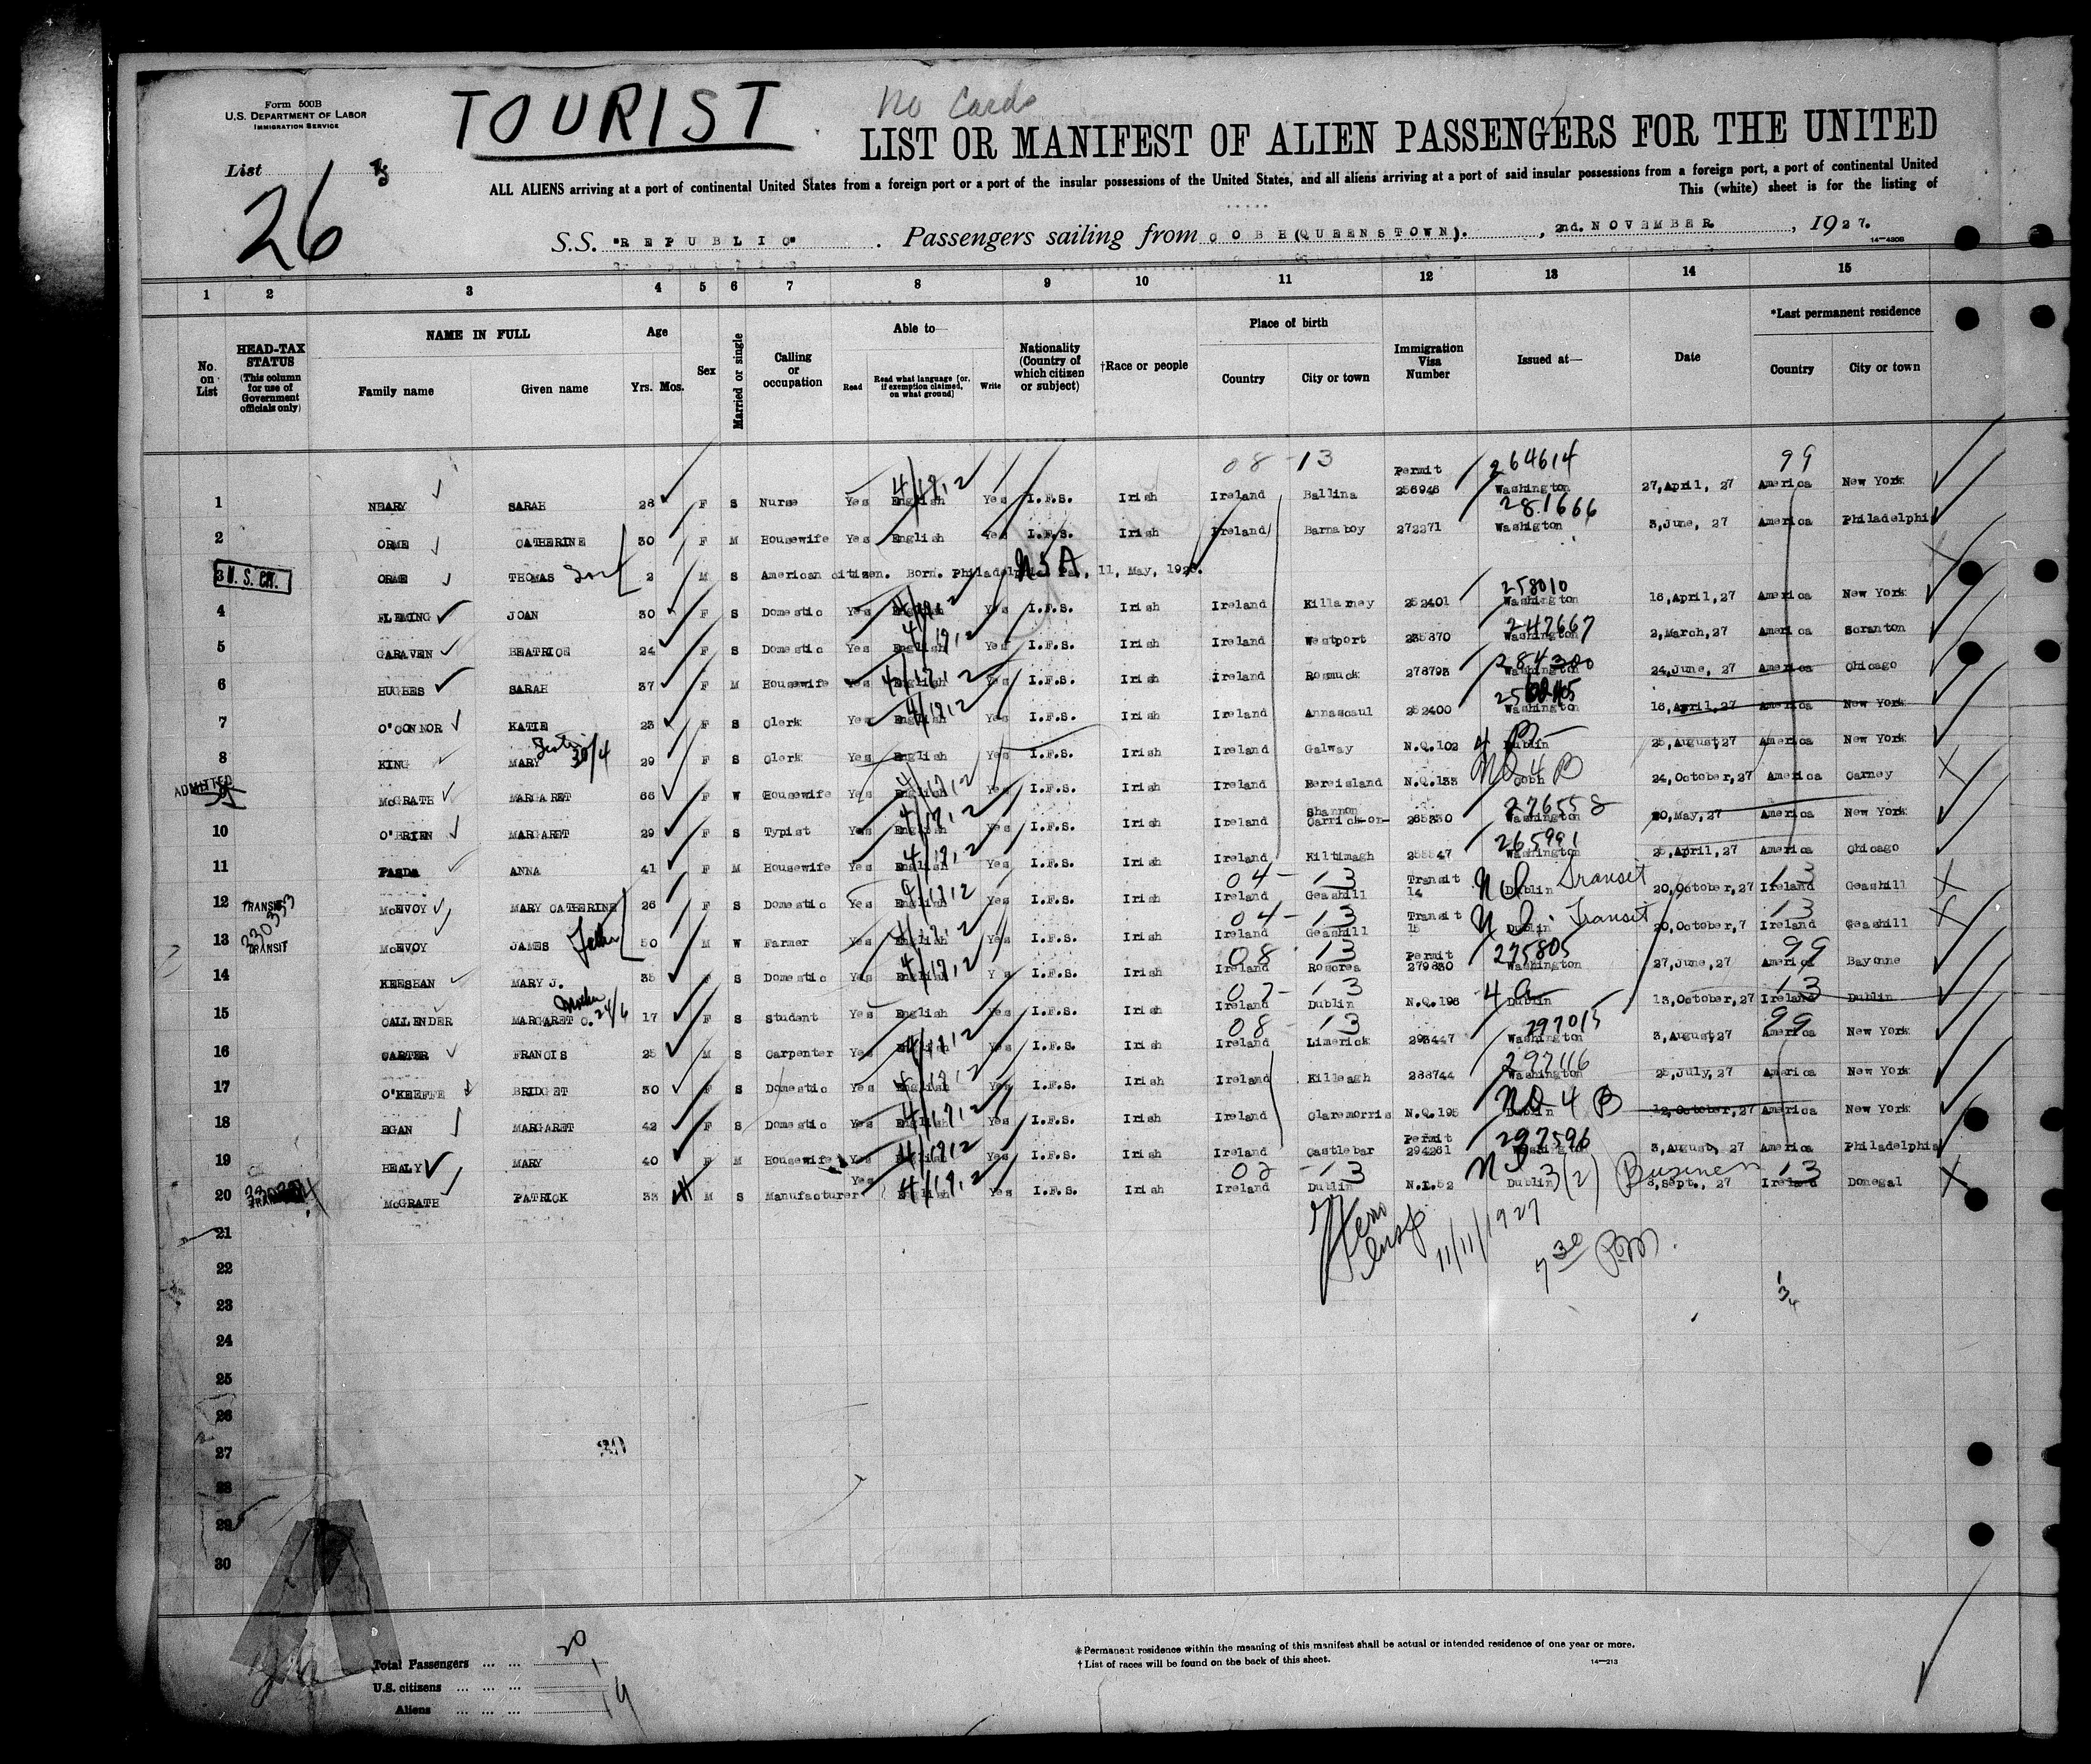 Form 500B
U.S. DEPARTMENT OF LABOR
IMMIGRATION SERVICE
TOURIST
No Cards
LIST OR MANIFEST OF ALIEN PASSENGERS FOR THE UNITED
List
26
ALL ALIENS arriving at a port of continental United States from a foreign port or a port of the insular possessions of the United States, and all aliens arriving at a port of said insular possessions from a foreign port, a port of continental United
This (white) sheet is for the listing of
S.S. "REPUBLIC" . Passengers sailing from COBH(QUEENSTOWN). , 2nd. NOVEMBER. , 1927.
14—430B
1 2 3 4 5 6 7 8 9 10 11 12 13 14 15
No. on List
HEAD-TAX STATUS (This column for use of Government officials only)
NAME IN FULL
Family name Given name
Age
Yrs. Mos.
Sex
Married or single
Calling or occupation
Able to—
Read Read what language [or, if exemption claimed, on what ground] Write
Nationality (Country of which citizen or subject)
†Race or people
Place of birth
Country City or town
Immigration Visa Number
Issued at—
Date
*Last permanent residence
Country City or town
08 - 13 Permit 264614 99
1 NEARY SARAH 28 F S Nurse Yes English Yes I.F.S. Irish Ireland Ballina 256946 Washington 27,April, 27 America New York
281666
2 ORME CATHERINE 30 F M Housewife Yes English Yes I.F.S. Irish Ireland Barnaboy 272271 Washigton 3,June, 27 America Philadelphi
3 U. S. CIT. ORME THOMAS Son 2 M S American citizen. Born. Philadelphia Pa., 11, May, 192 USA
258010
4 FLEMING JOAN 30 F S Domestic Yes English Yes I.F.S. Irish Ireland Killarney 252401 Washington 16,April,27 America New York
247667
5 GARAVEN BEATRICE 24 F S Domestic Yes English Yes I.F.S. Irish Ireland Westport 235870 Washington 2,March,27 America Scranton
284380
6 HUGHES SARAH 37 F M Housewife Yes English Yes I.F.S. Irish Ireland Rosmuck 278793 Washington 24,June, 27 America Chicago
7 O'CONNOR KATIE 23 F S Clerk Yes English Yes I.F.S. Irish Ireland Annascaul 252400 Washington 16,April,27 America New York
8 KING MARY 30/4 29 F S Clerk Yes English Yes I.F.S. Irish Ireland Galway N.Q.102 Dublin 4 B 25,August,27 America New York
ADMITTED
9 McGRATH MARGARET 66 F W Housewife Yes English Yes I.F.S. Irish Ireland Bereisland N.Q.133 Cobh NQ 4 B 24,October,27 America Carney
10 O'BRIEN MARGARET 29 F S Typist Yes English Yes I.F.S. Irish Ireland Carrick-on-Shannon 265330 Washington 20,May,27 America New York
265991
11 ANNA 41 F M Housewife Yes English Yes I.F.S. Irish Ireland Kiltimagh Washington 25,April,27 America Chicago
04 - 13 Transit 13
12 TRANSIT McEVOY MARY CATHERINE 26 F S Domestic Yes English Yes I.F.S. Irish Ireland Geashill Transit 14 Dublin 20,October,27 Ireland Geashill
04 - 13 Transit 13
13 TRANSIT McEVOY JAMES Father 50 M W Farmer Yes English Yes I.F.S. Irish Ireland Geashill Transit 15 Dublin 20,October,7 Ireland Geashill
08 - 13 Permit 275805 99
14 KEESHAN MARY J. 35 F S Domestic Yes English Y s I.F.S. Irish Ireland Roscrea 279830 Washington 27,June,27 America Bayonne
02 - 13 4 13
15 CALLENDER MARGARET C. Mother 24/6 17 F S Student Yes English Yes I.F.S. Irish Ireland Dublin N.Q.196 Dublin 13,October,27 Ireland Dublin
08 - 13 297015 99
16 CARTER FRANCIS 25 M S Carpenter Yes English Yes I.F.S. Irish Ireland Limerick 293447 Washington 3,August,27 America New York
297116
17 O'KEEFFE BRIDGET 30 F S Domestic Yes English Yes I.F.S. Irish Ireland Killeagh 288744 Washington 25,July,27 America New York
18 EGAN MARGARET 42 F S Domestic Yes English Yes I.F.S. Irish Ireland Claremorris N.Q.195 Dublin NQ 4 B 12,October,27 America New York
Permit 297596
19 HEALY MARY 40 F M Housewife Yes English Yes I.F.S. Irish Ireland Castlebar 294261 Washington 3,August, 27 America Philadelphia
02 - 13 3(2) Business 13
20 McGRATH PATRICK 33 M S Manufacturer Yes English Yes I.F.S. Irish Ireland Dublin N.I.52 Dublin 6,Sept., 27 Ireland Donegal
11/11/1927
7 30 PM.
21
22
23
24
25
26
27
28
29
30
Total Passengers ... ... 20
U.S. citizens ... ... ... 1
Aliens ... ... ... 19
*Permanent residence within the meaning of this manifest shall be actual or intended residence of one year or more.
†List of races will be found on the back of this sheet.
14—213